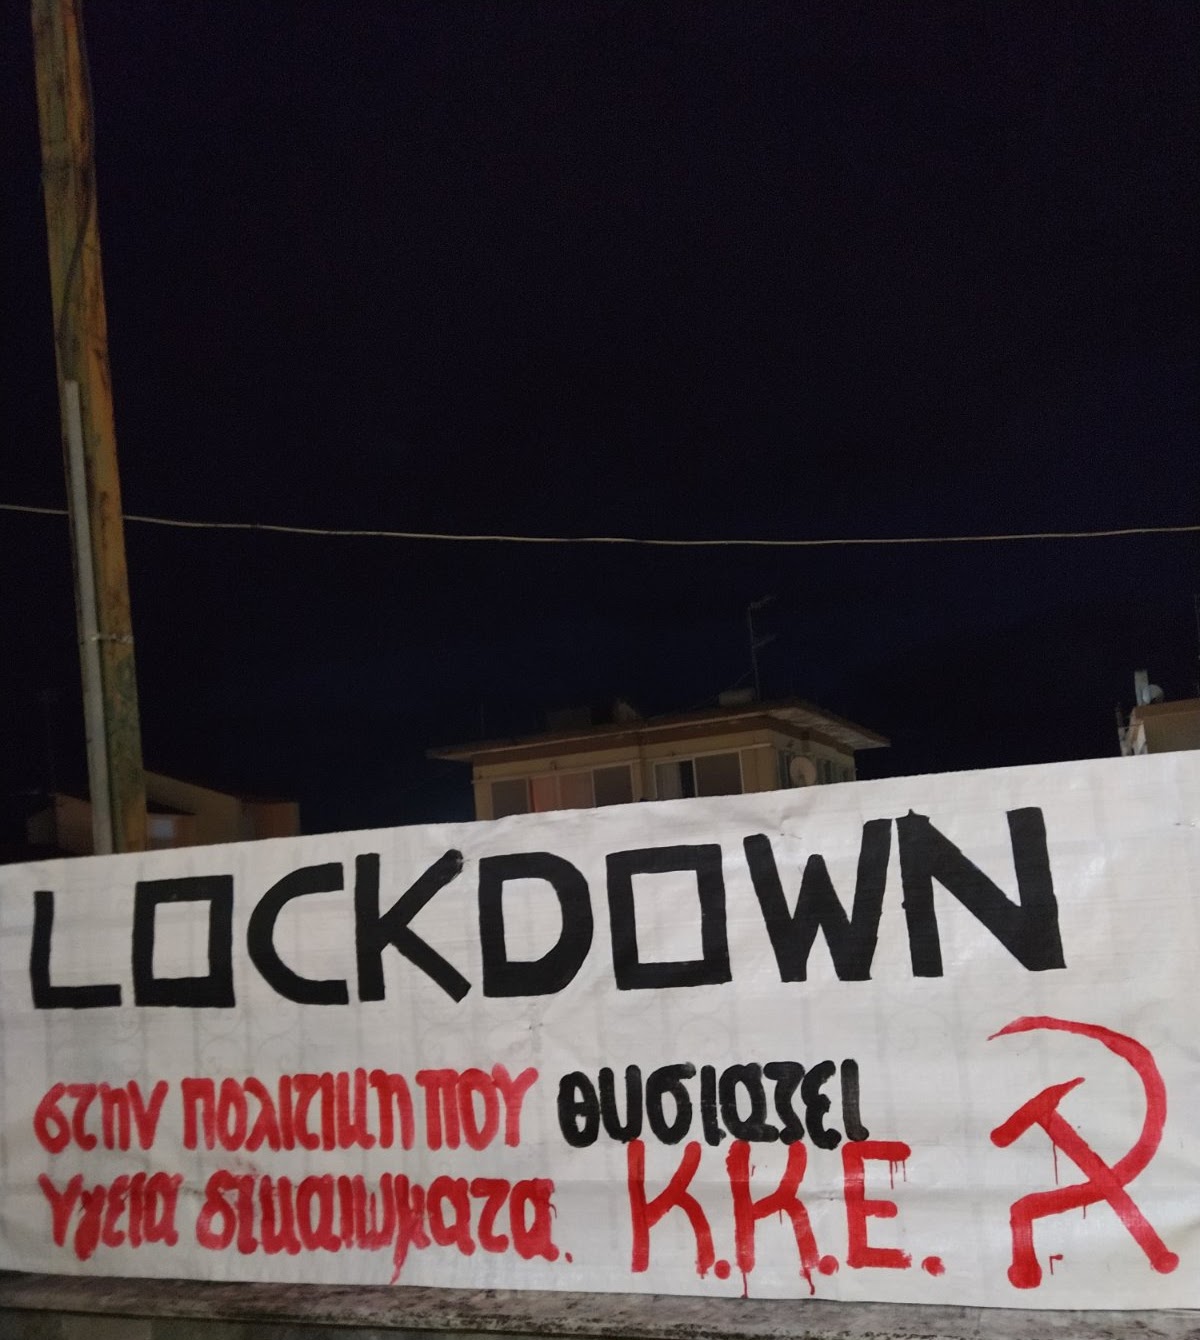 LOCKDOWN
στην πολιτικη που θυσιαζει
υγεια δικαιωματα.
Κ.Κ.Ε.